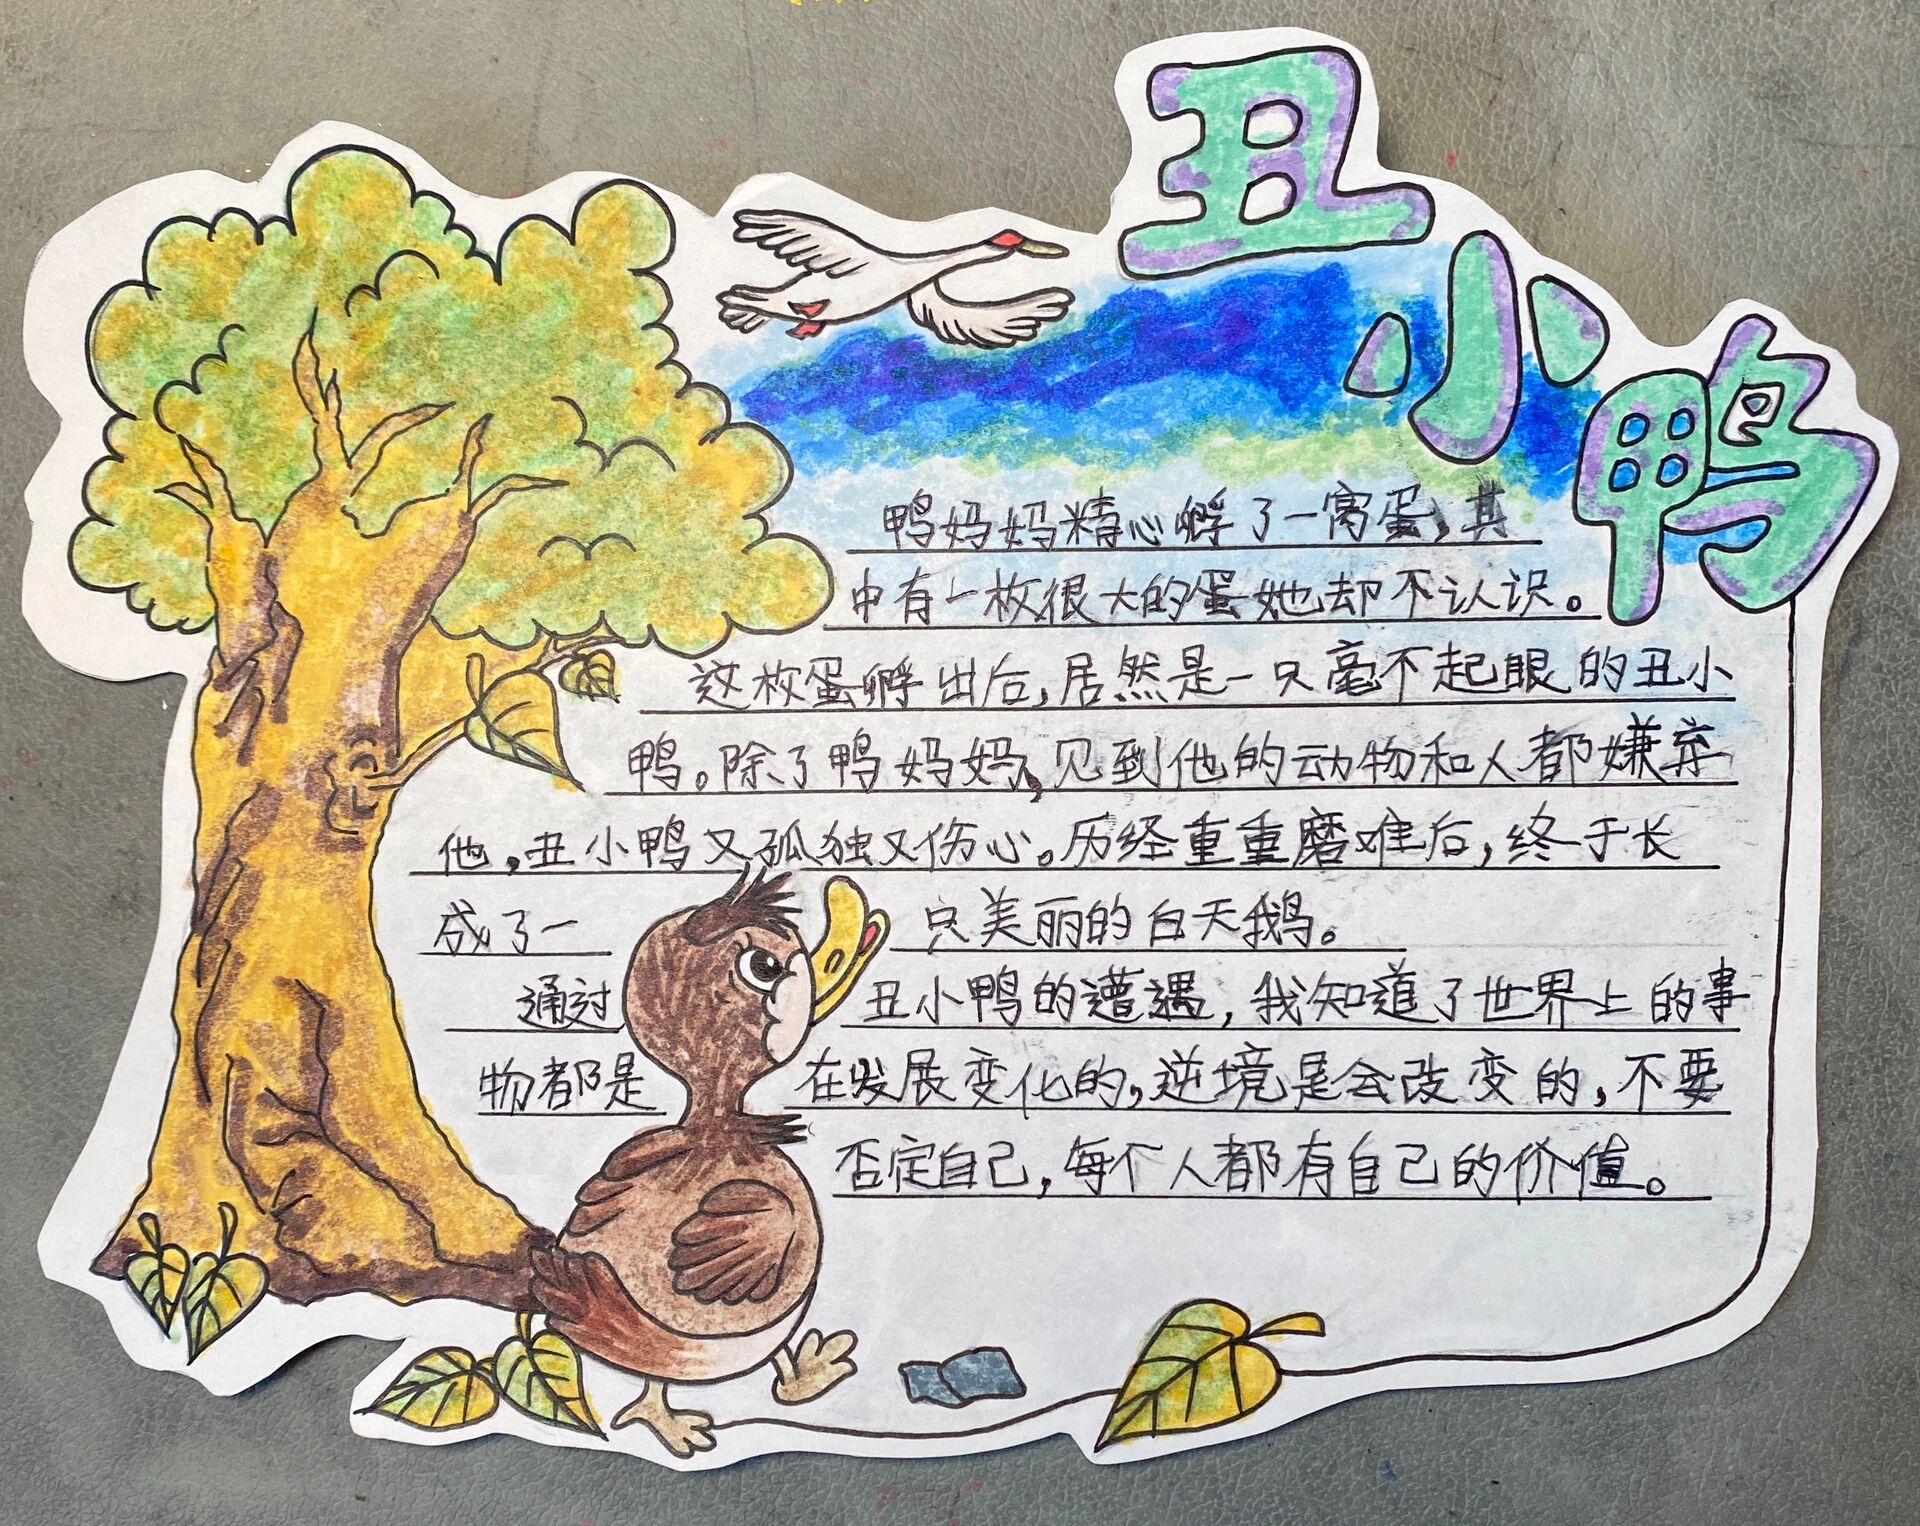 丑小鸭
鸭妈妈精心孵了一窝蛋，其
中有一枚很大的蛋她却不认识。
这枚蛋孵出后，居然是一只毫不起眼的丑小
鸭。除了鸭妈妈，见到他的动物和人都嫌弃
他，丑小鸭又孤独又伤心。历经重重磨难后，终于长
成了一只美丽的白天鹅。
通过丑小鸭的遭遇，我知道了世界上的事
物都是在发展变化的，逆境是会改变的，不要
否定自己，每个人都有自己的价值。